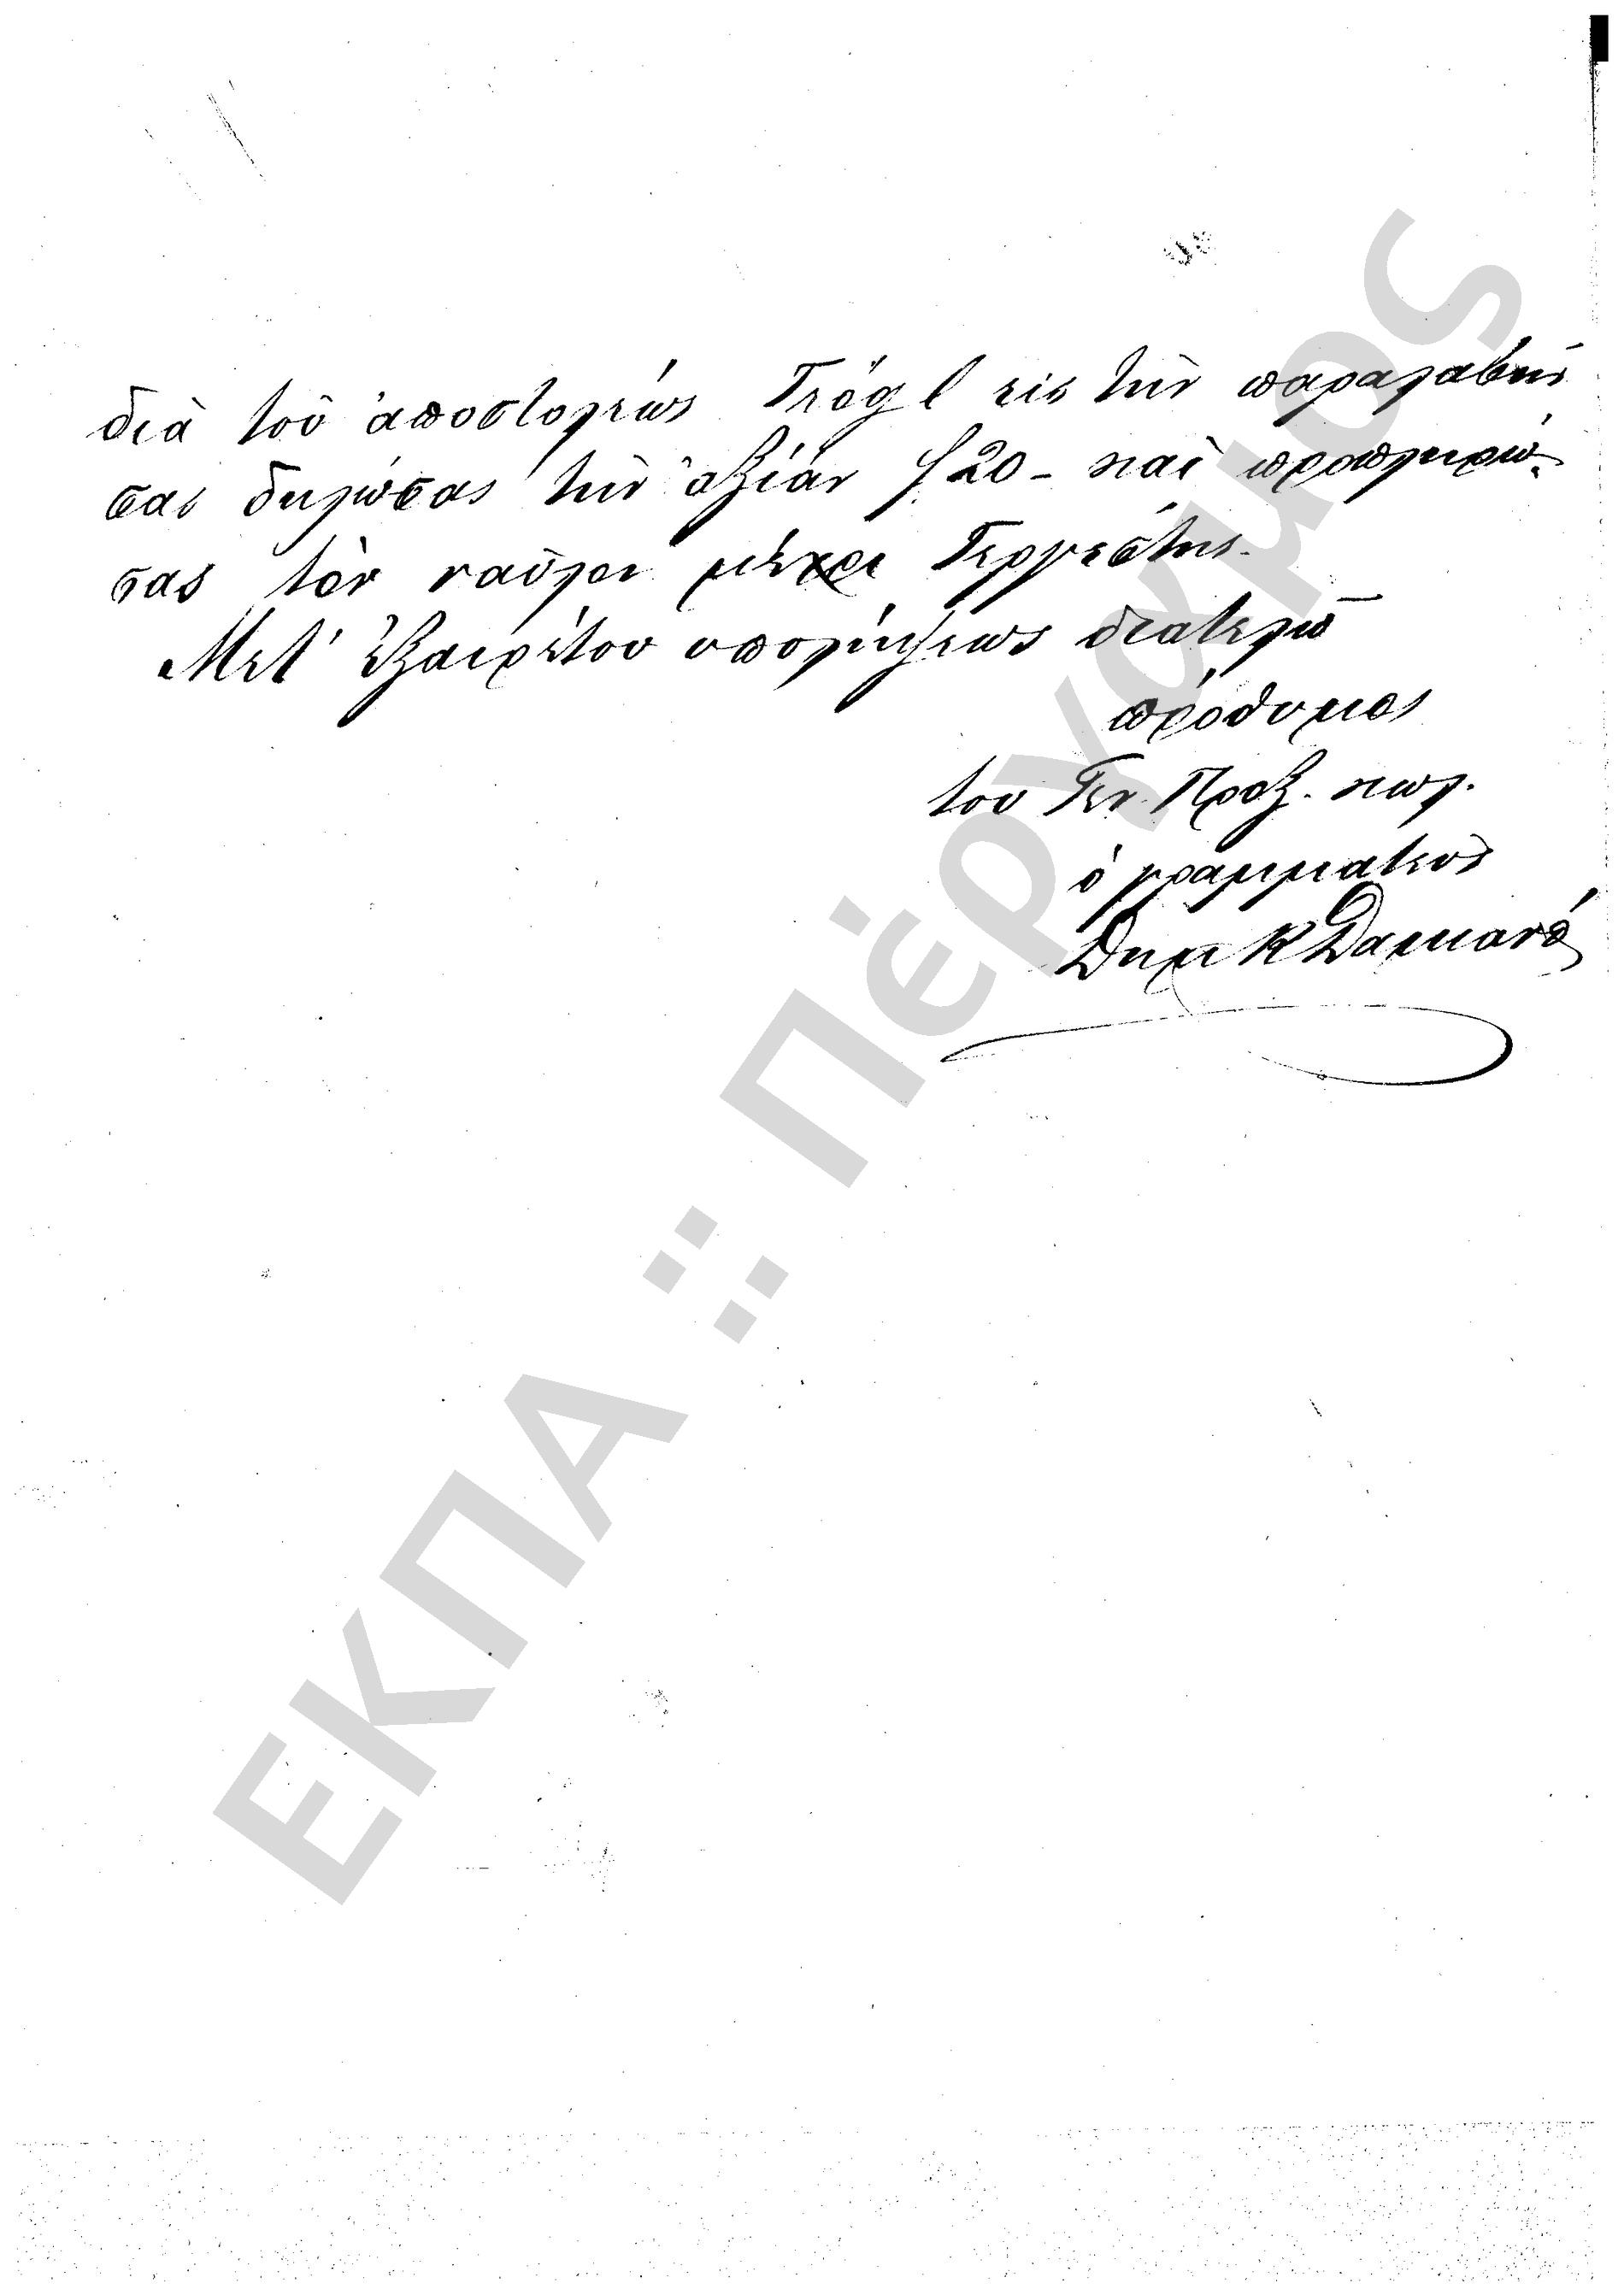 διὰ τοῦ ἀποστολέως Γεόγλ εἰς τὴν παραλαβήν
σας δηλώσας τὴν ἀξίαν ƒ 20 - καὶ προπληρώ-
σας τὸν ναῦλον μέχρι Τεργέστης.
Μετ' ἐξαιρέτου υποληψεως διατελῶ
πρόθυμος
του Γεν. Προξ. κωλ.
ὁ γραμματεὺς
Δημ Κ Δαμιανός
ΕΚΠΑ :: Πέργαμος